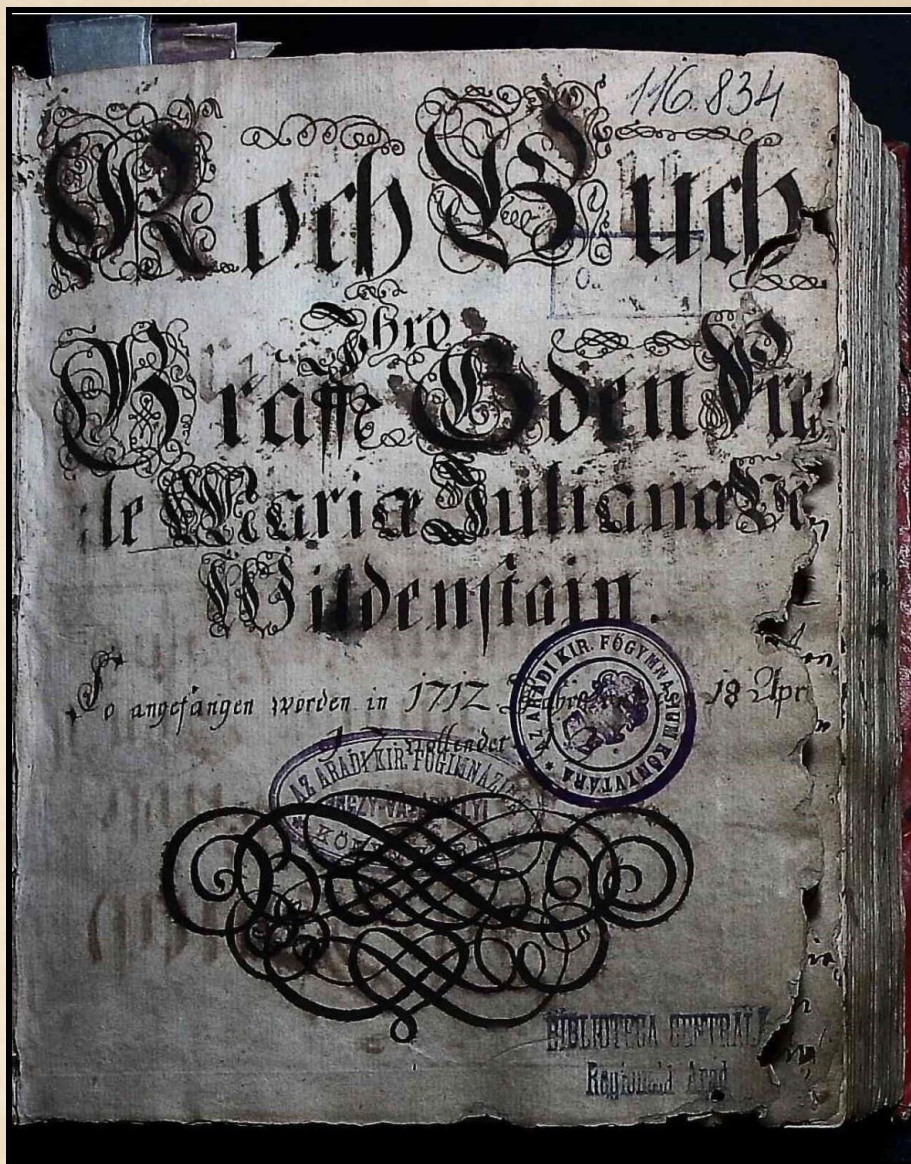 116.834
Koch Buch
Ihro
Graffe Gden Fre
:le Mariæ Juliana Ve
Wildenstain.
So angefangen worden in 1712 18 Apr
vollendet
AZ ARADI KIR. FŐGYMNASIUM KÖNYVTÁRA
AZ ARADI KIR. FŐGIMNÁZIUM
BIBLIOTECA CENTRALĂ
Regională Arad